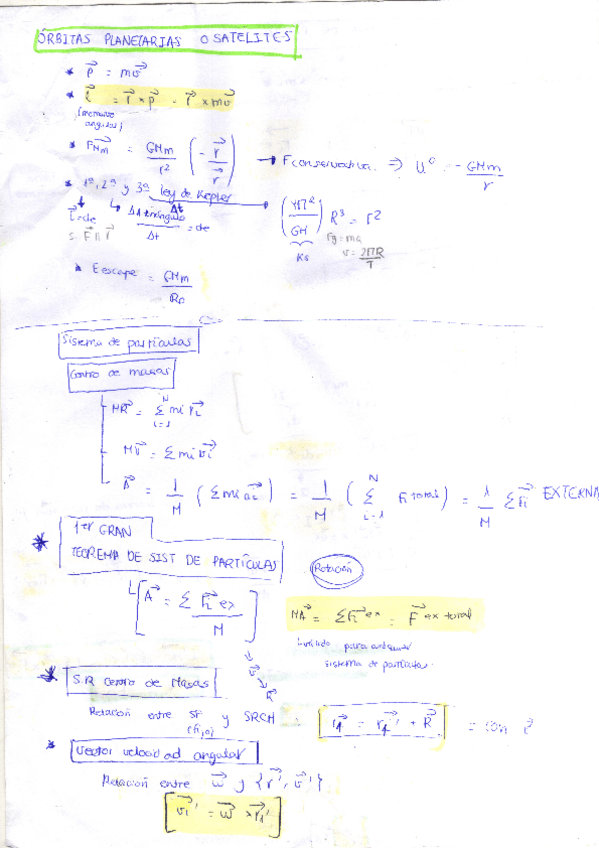 ÓRBITAS PLANETARIAS O SATELITES
* p⃗ = mv⃗
* L⃗ = r⃗ × p⃗ = r⃗ × mv⃗
(momento angular)
* F⃗Mm = GMm/r² (− r⃗/r) → F conservativa ⇒ U⁰ = −GMm/r
* 1ª, 2ª y 3ª ley de Kepler → (4π²/GM) R³ = T²
L⃗ = cte ↳ ΔA triángulo/Δt = cte
s. F⃗ ∥ r⃗
Ks Fg = ma
v = 2πR/T
* E escape = GMm/R₀
Sistema de partículas
Centro de masas
MR⃗ = Σ(i=1, N) mi r⃗i
Mv⃗ = Σ mi v⃗i
A⃗ = 1/M (Σ mi a⃗i) = 1/M (Σ(i=1, N) Fi total) = 1/M ΣF⃗i EXTERNA
* 1er GRAN
TEOREMA DE SIST DE PARTÍCULAS
Rotación
[A⃗ = ΣF⃗i ex/M]
MA⃗ = ΣF⃗i ex = F⃗ ex total
para
sistema de partículas
* S.R Centro de Masas
Relación entre SF y SRCM : r⃗1 = r⃗1' + R⃗ = con i
* Vector velocidad angular
Relación entre ω⃗ y {r⃗', v⃗'}
[v⃗i' = ω⃗ × r⃗i']